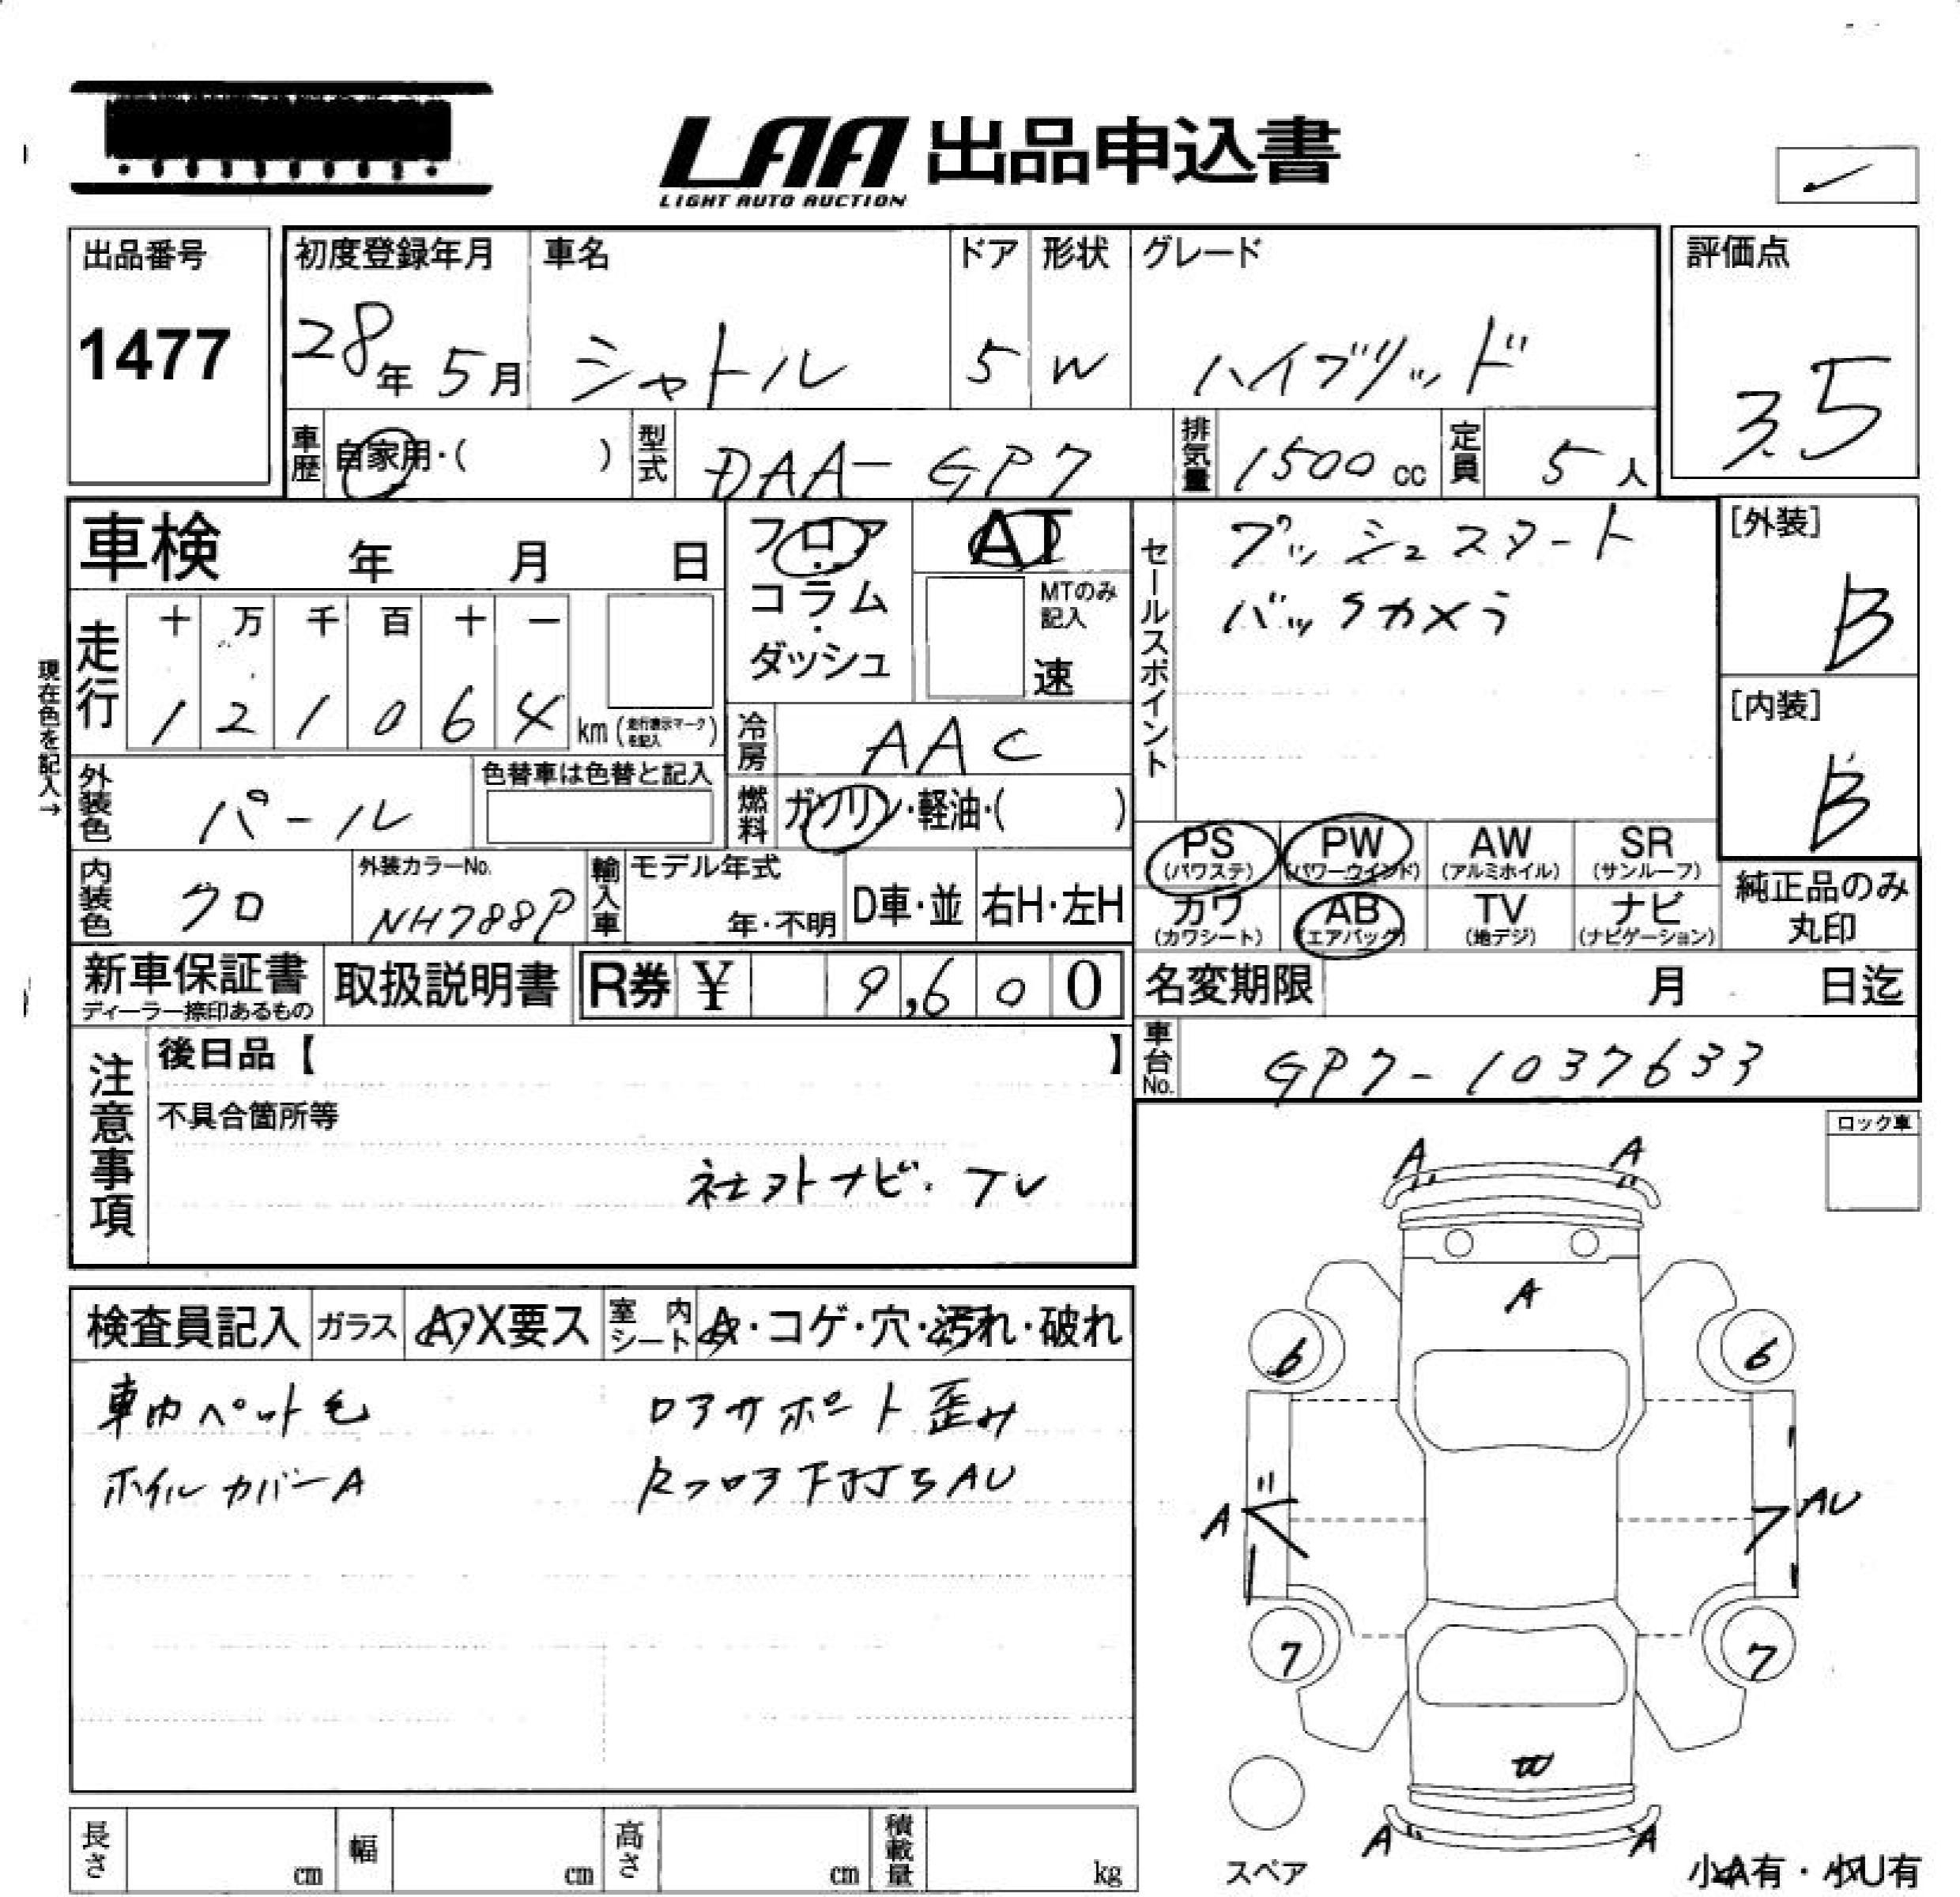 LAA 出品申込書
LIGHT AUTO AUCTION
出品番号
1477
初度登録年月
28年 5月
車名
シャトル
ドア
5
形状
W
グレード
ハイブリッド
評価点
3.5
車歴 自家用・( )
型式 DAA-GP7
排気量 1500 cc
定員 5 人
車検 年 月 日
フロア・コラム・ダッシュ
AT
MTのみ記入
速
セールスポイント
プッシュスタート
バックカメラ
[外装]
B
[内装]
B
現在色を記入→
走行
十 万 千 百 十 一
1 2 1 0 6 4 km (走行表示マークを記入)
冷房 AAC
外装色 パール
色替車は色替と記入
燃料 ガソリン・軽油・( )
PS (パワステ)
PW (パワーウインド)
AW (アルミホイル)
SR (サンルーフ)
カワ (カワシート)
AB (エアバッグ)
TV (地デジ)
ナビ (ナビゲーション)
純正品のみ
丸印
内装色 クロ
外装カラーNo.
NH788P
輸入車
モデル年式
年・不明
D車・並
右H・左H
新車保証書
ディーラー捺印あるもの
取扱説明書
R券 ¥ 9,600
名変期限 月 日迄
車台No. GP7-1037633
注意事項
後日品【 】
不具合箇所等
社外ナビ・TV
ロック車
検査員記入
ガラス A・X要ス
室内シート A・コゲ・穴・汚れ・破れ
車内ペット毛
ロアサポート歪み
ホイルカバーA
下打ちAU
A A
A
6 6
A AU
7 7
W
A A
スペア
小A有・小U有
長さ cm
幅 cm
高さ cm
積載量 kg